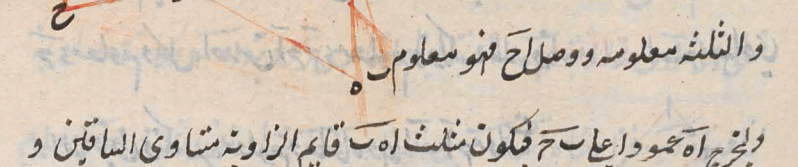 ح
والثلثه معلومه ووصل اح فهو معلوم
ب ه
ولنخرج اه عمودا علی ب ح فیکون مثلث اه ب قایم الزاویه متساوی الساقین و